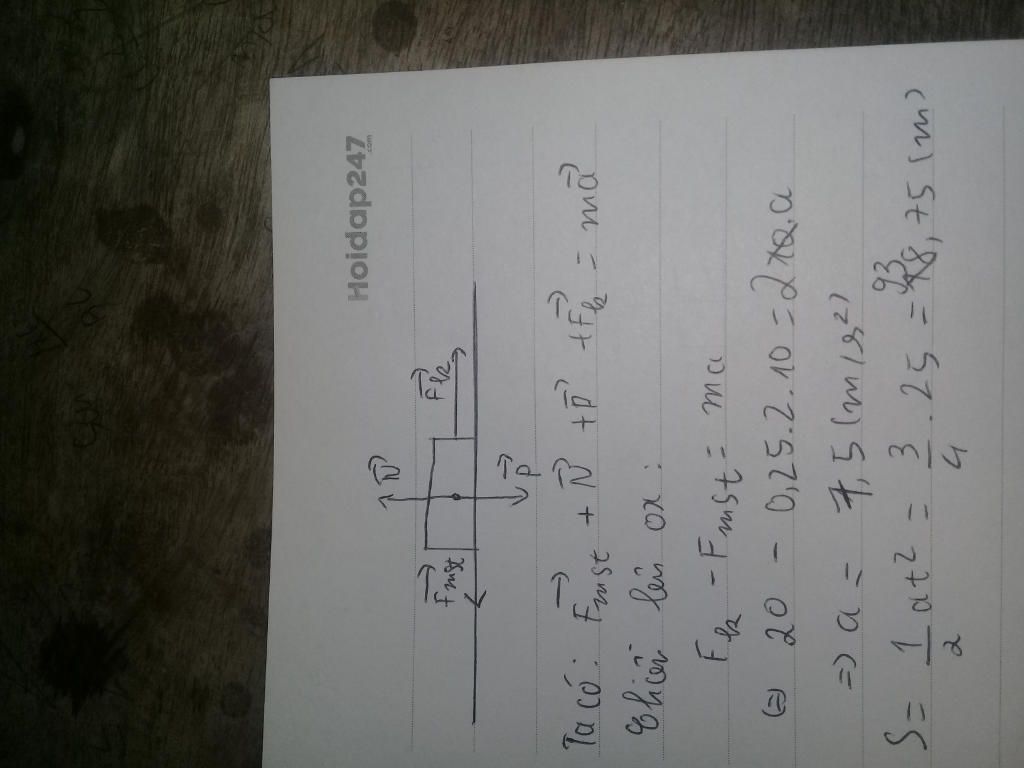 Hoidap247
.com
N⃗
F⃗mst
F⃗k
P⃗
Ta có: F⃗mst + N⃗ + P⃗ + F⃗k = ma⃗
Chiếu lên ox:
Fk - Fmst = ma
⇔ 20 - 0,25.2.10 = 2.a
⇒ a = 7,5 (m/s²)
S = 1/2 at² = 3/4 . 25 = 93,75 (m)